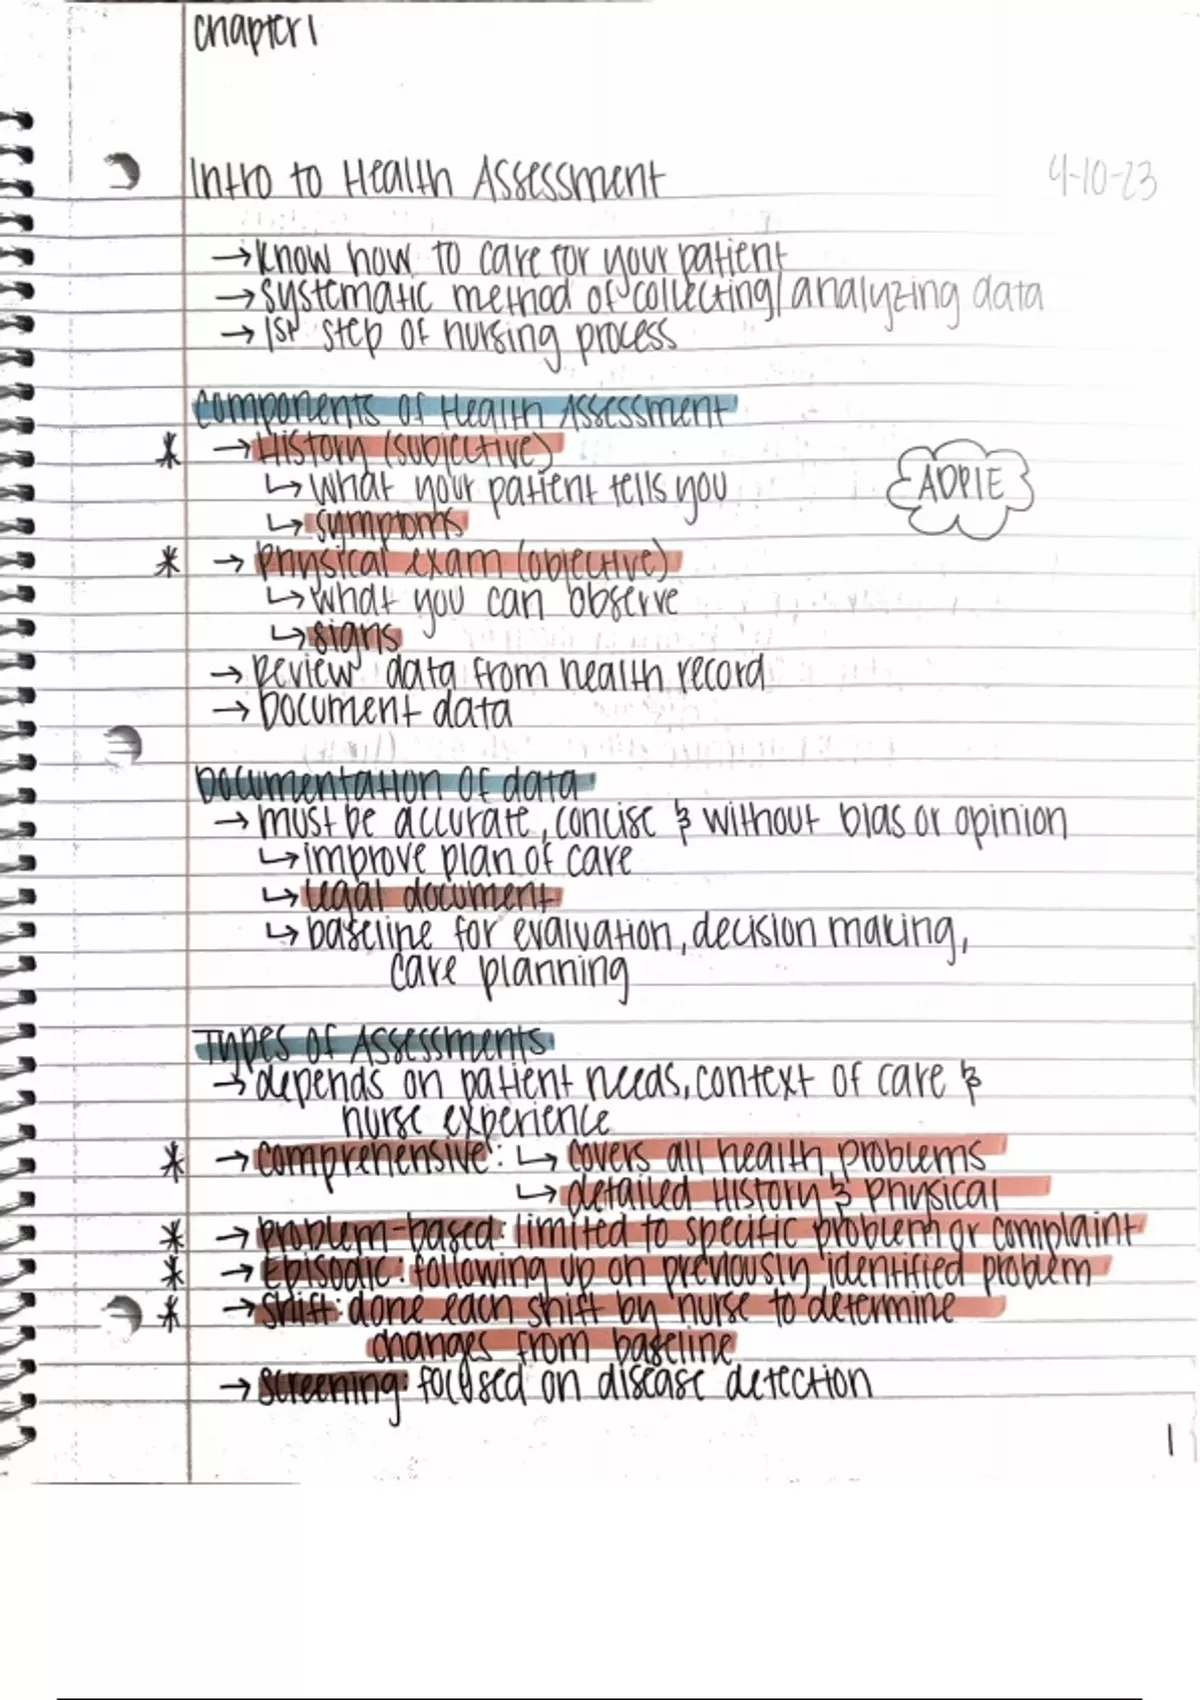 Chapter 1
Intro to Health Assessment 4-10-23
→ Know how to care for your patient
→ systematic method of collecting/analyzing data
→ 1st step of nursing process
Components of Health Assessment
* → History (subjective)
↳ what your patient tells you
ADPIE
↳ symptoms
* → Physical exam (objective)
↳ what you can observe
↳ signs
→ Review data from health record
→ Document data
Documentation of data
→ must be accurate, concise & without bias or opinion
↳ improve plan of care
↳ legal document
↳ baseline for evaluation, decision making,
care planning
Types of Assessments
→ depends on patient needs, context of care &
nurse experience
* → comprehensive: ↳ covers all health problems
↳ detailed History & Physical
* → problem-based: limited to specific problem or complaint
* → Episodic: following up on previously identified problem
* → shift: done each shift by nurse to determine
changes from baseline
→ screening: focused on disease detection
1